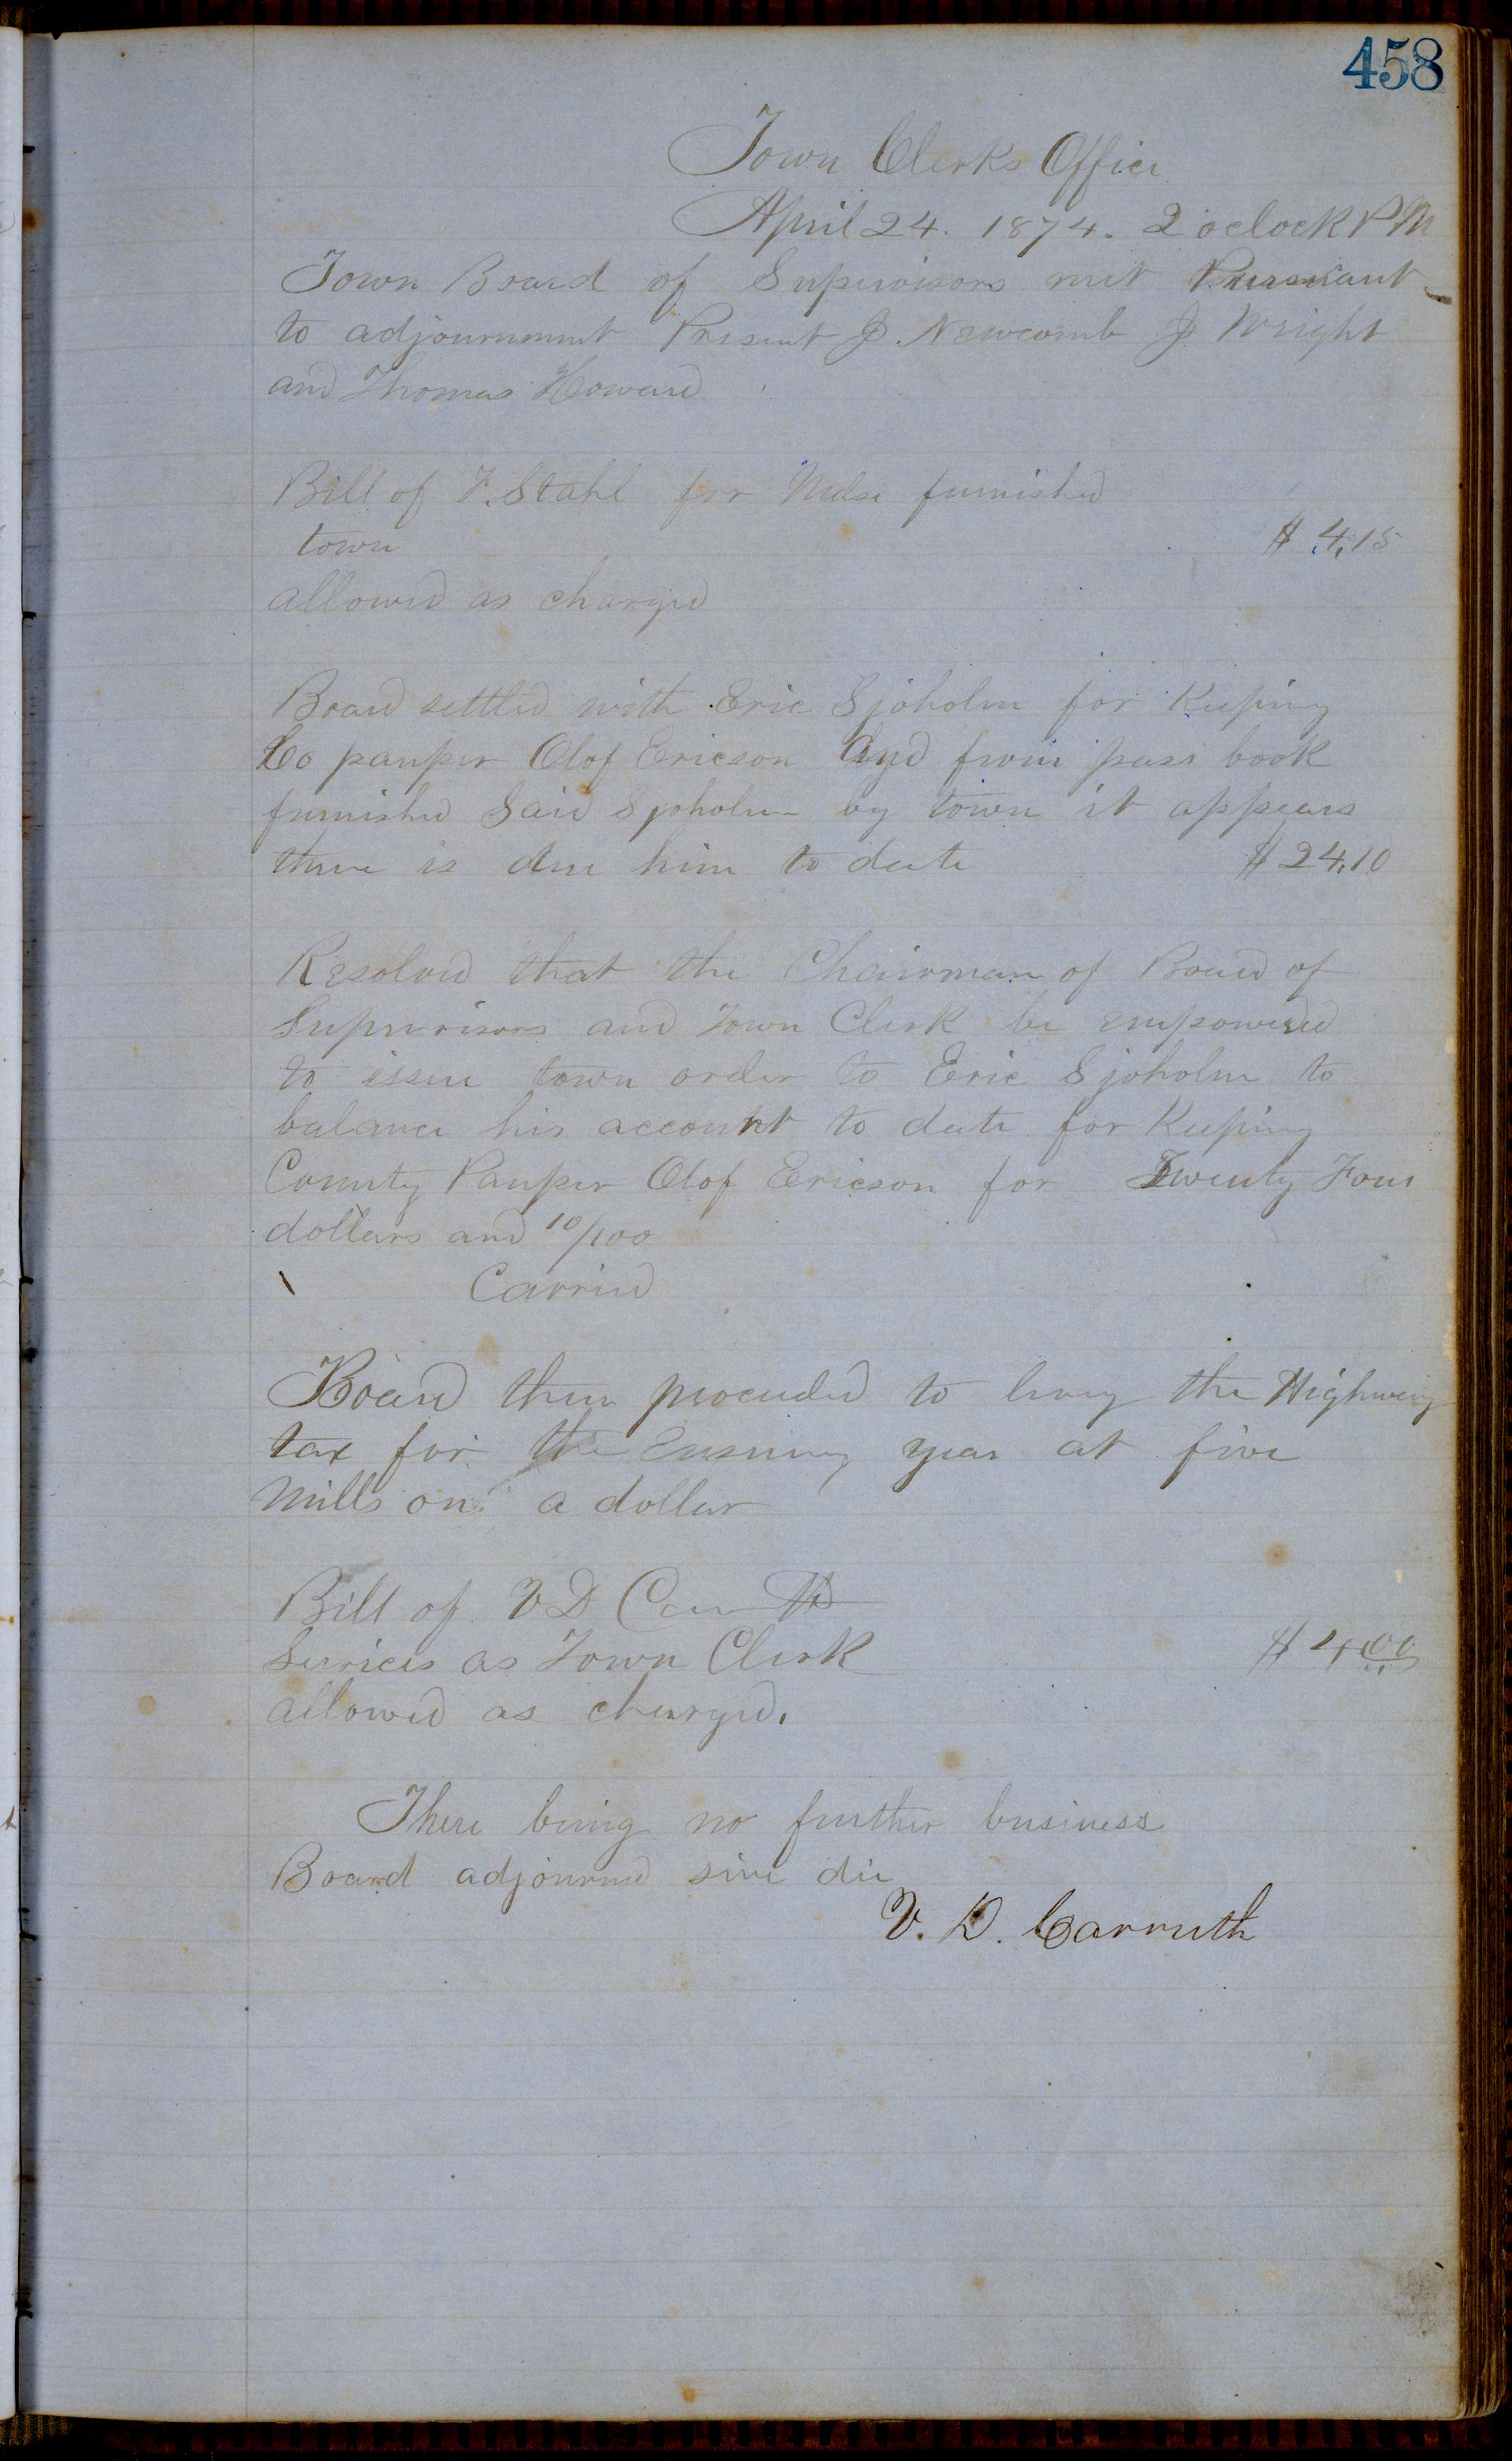 458
Town Clerks Office
April 24. 1874. 2 oclock P M
Town Board of Supervisors met Pursuant
to adjournment Present J. Newcomb J. Wright
and Thomas Howard
Bill of F. Stahl for Mdse furnished
town $ 4,15
allowed as charged
Board settled with Eric Sjoholm for Keeping
Co pauper Olof Ericson And from pass book
furnished Said Sjoholm by town it appears
there is due him to date $ 24,10
Resolved that the Chairman of Board of
Supervisors and Town Clerk be empowered
to issue town order to Eric Sjoholm to
balance his account to date for Keeping
County Pauper Olof Ericson for Twenty Four
dollars and 10/100
Carried
Board then proceeded to levy the Highway
tax for the Ensuing year at five
Mills on a dollar
Bill of V D Carruth
Services as Town Clerk $ 4,00
allowed as charged.
There being no further business
Board adjourned sine die
V. D. Carruth